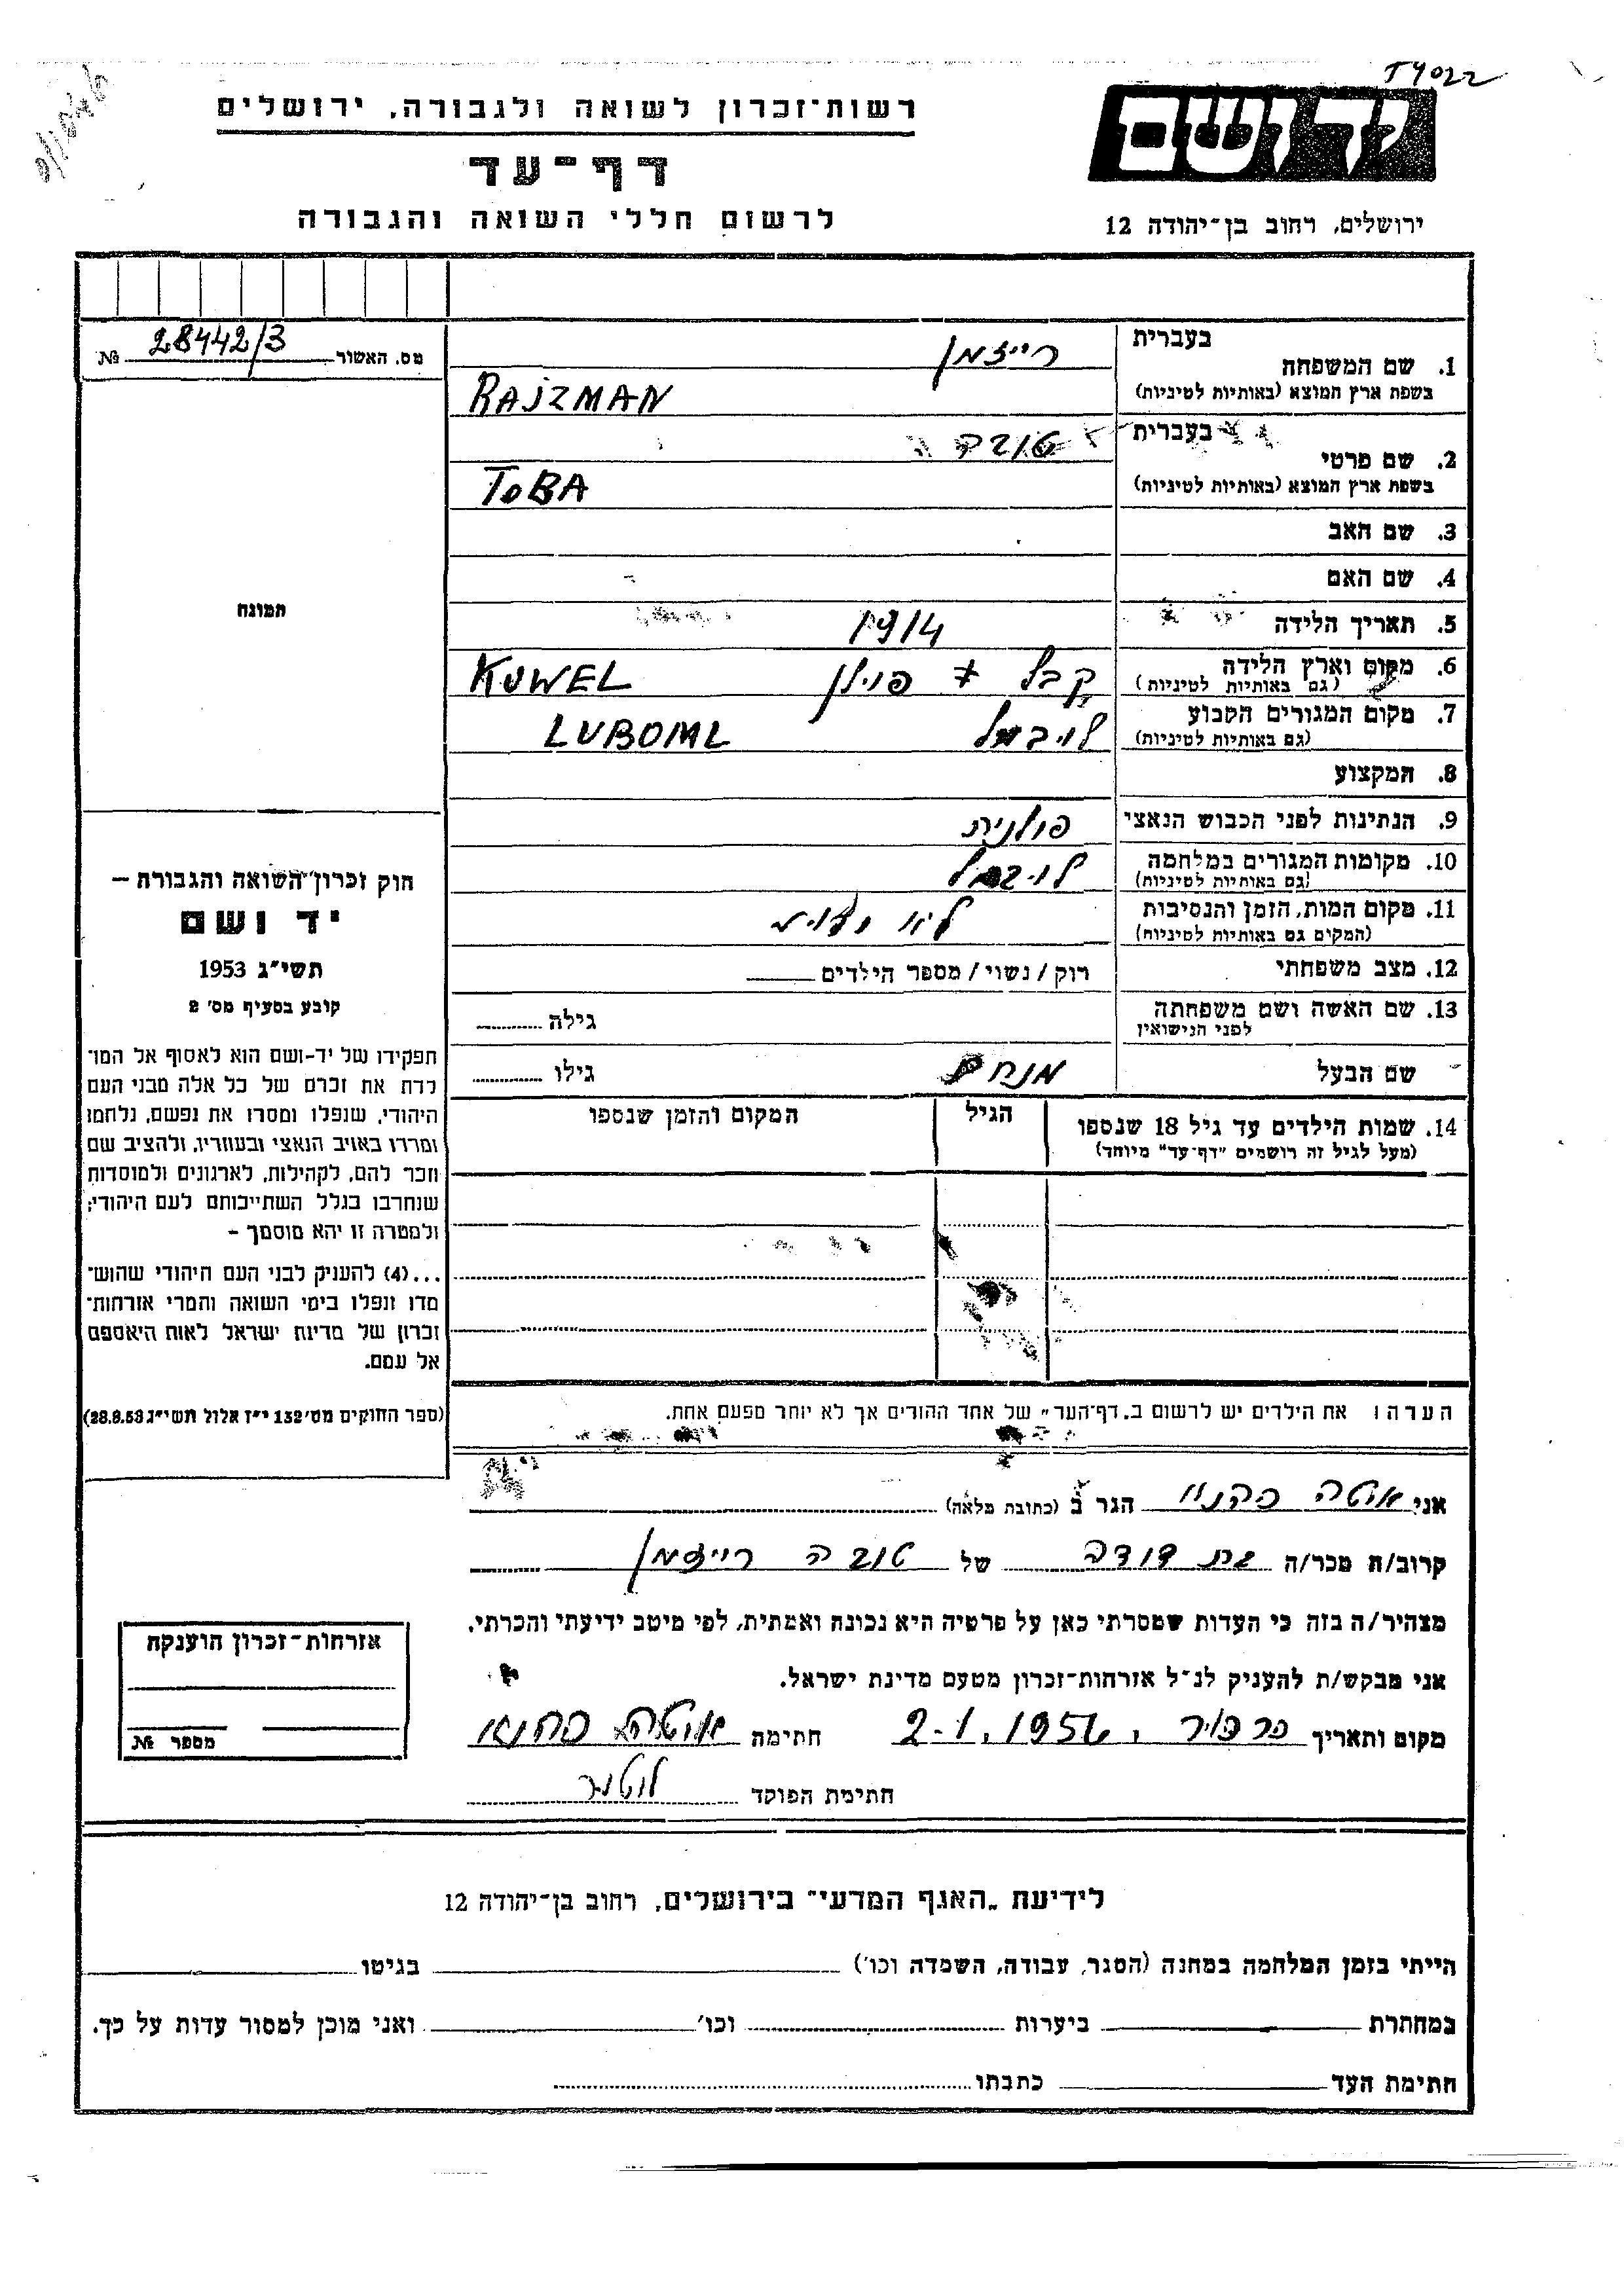 T4022
רשות־זכרון לשואה ולגבורה, ירושלים
יד ושם
דף־עד
לרשום חללי השואה והגבורה
ירושלים, רחוב בן־יהודה 12
מס. האשור 28442/3 №
בעברית רייזמן
1. שם המשפחה
בשפת ארץ המוצא (באותיות לטיניות) RAJZMAN
בעברית טובה
2. שם פרטי
בשפת ארץ המוצא (באותיות לטיניות) TOBA
3. שם האב
4. שם האם
5. תאריך הלידה 1914
6. מקום וארץ הלידה קבל פוילן KUWEL
(גם באותיות לטיניות)
7. מקום המגורים הקבוע לויבמל LUBOML
(גם באותיות לטיניות)
8. המקצוע
9. הנתינות לפני הכבוש הנאצי פולנית
10. מקומות המגורים במלחמה לויבמל
(גם באותיות לטיניות)
11. מקום המות, הזמן והנסיבות לא
(המקום גם באותיות לטיניות)
12. מצב משפחתי רוק / נשוי / מספר הילדים
13. שם האשה ושם משפחתה גילה
לפני הנישואין
שם הבעל מנחם גילו
14. שמות הילדים עד גיל 18 שנספו הגיל המקום והזמן שנספו
(מעל לגיל זה רושמים "דף־עד" מיוחד)
הערה: את הילדים יש לרשום ב„דף־העד" של אחד ההורים אך לא יותר מפעם אחת.
תמונה
חוק זכרון השואה והגבורה –
יד ושם
תשי"ג 1953
קובע בסעיף מס' 2
תפקידו של יד־ושם הוא לאסוף אל המו־
לדת את זכרם של כל אלה מבני העם
היהודי, שנפלו ומסרו את נפשם, נלחמו
ומרדו באויב הנאצי ובעוזריו, ולהציב שם
וזכר להם, לקהילות, לארגונים ולמוסדות
שנחרבו בגלל השתייכותם לעם היהודי;
ולמטרה זו יהא מוסמך –
...(4) להעניק לבני העם היהודי שהוש־
מדו ונפלו בימי השואה והמרי אזרחות־
זכרון של מדינת ישראל לאות היאספם
אל עמם.
(ספר החוקים מס' 132 י"ז אלול תשי"ג 28.8.53)
אני איטה כהנא הגר ב (כתובת מלאה)
קרוב/ת מכר/ה בת דודה של טובה רייזמן
מצהיר/ה בזה כי העדות שמסרתי כאן על פרטיה היא נכונה ואמתית, לפי מיטב ידיעתי והכרתי.
אני מבקש/ת להעניק לנ"ל אזרחות־זכרון מטעם מדינת ישראל.
מקום ותאריך כרכור, 2-1.1956 חתימה איטה כהנא
חתימת הפוקד
אזרחות־זכרון הוענקה
מספר №
לידיעת „האגף המדעי" בירושלים, רחוב בן־יהודה 12
הייתי בזמן המלחמה במחנה (הסגר, עבודה, השמדה וכו') בגיטו
במחתרת ביערות וכו' ואני מוכן למסור עדות על כך.
חתימת העד כתבתו